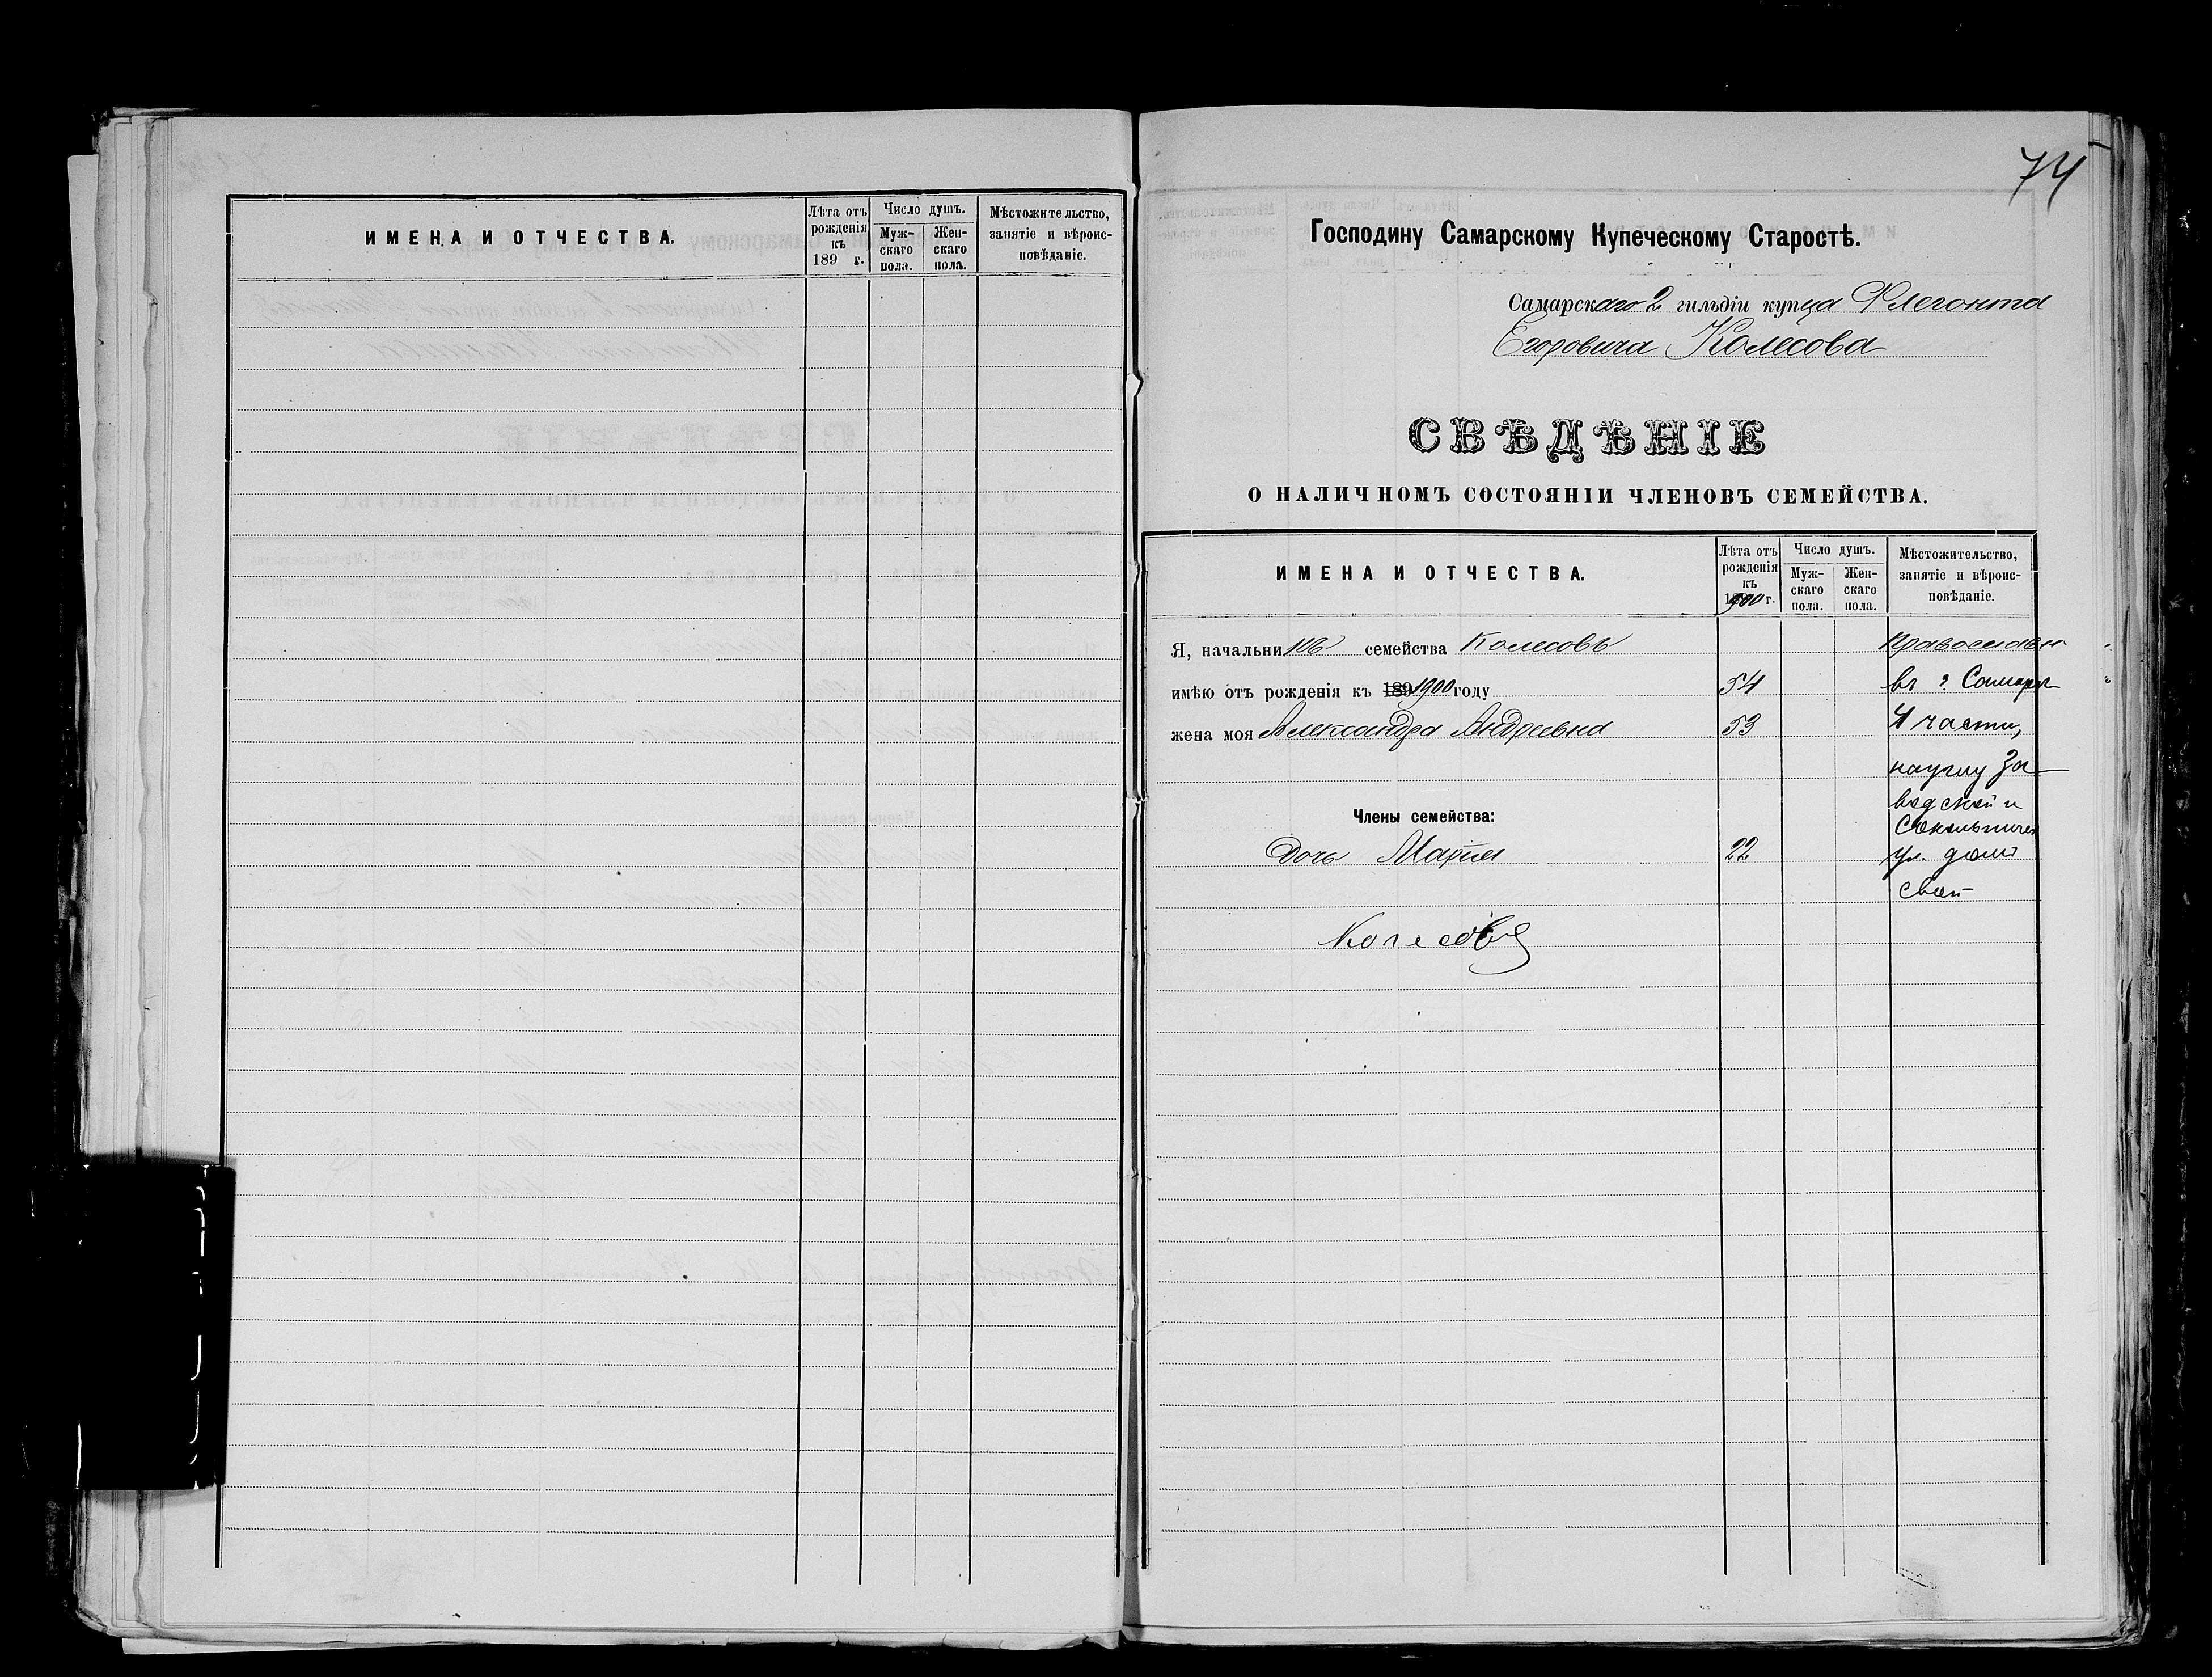 ИМЕНА И ОТЧЕСТВА.
Лѣта отъ рожденія къ 189 г.
Число душъ.
Мужскаго пола.
Женскаго пола.
Мѣстожительство, занятіе и вѣроисповѣданіе.
74
Господину Самарскому Купеческому Старостѣ.
Самарскаго 2 гильдіи купца Флегонта
Егоровича Колесова
СВѢДѢНІЕ
О НАЛИЧНОМЪ СОСТОЯНІИ ЧЛЕНОВЪ СЕМЕЙСТВА.
ИМЕНА И ОТЧЕСТВА.
Лѣта отъ рожденія къ 1900 г.
Число душъ.
Мужскаго пола.
Женскаго пола.
Мѣстожительство, занятіе и вѣроисповѣданіе.
Я, начальникъ семейства Колесовъ
имѣю отъ рожденія къ 189 1900 году 54
жена моя Александра Андреевна 53
Члены семейства:
Дочь Марія 22
Колесовъ
Православн
въ г Самарѣ
4 части,
науглу За
водской и
ул. домъ
свой